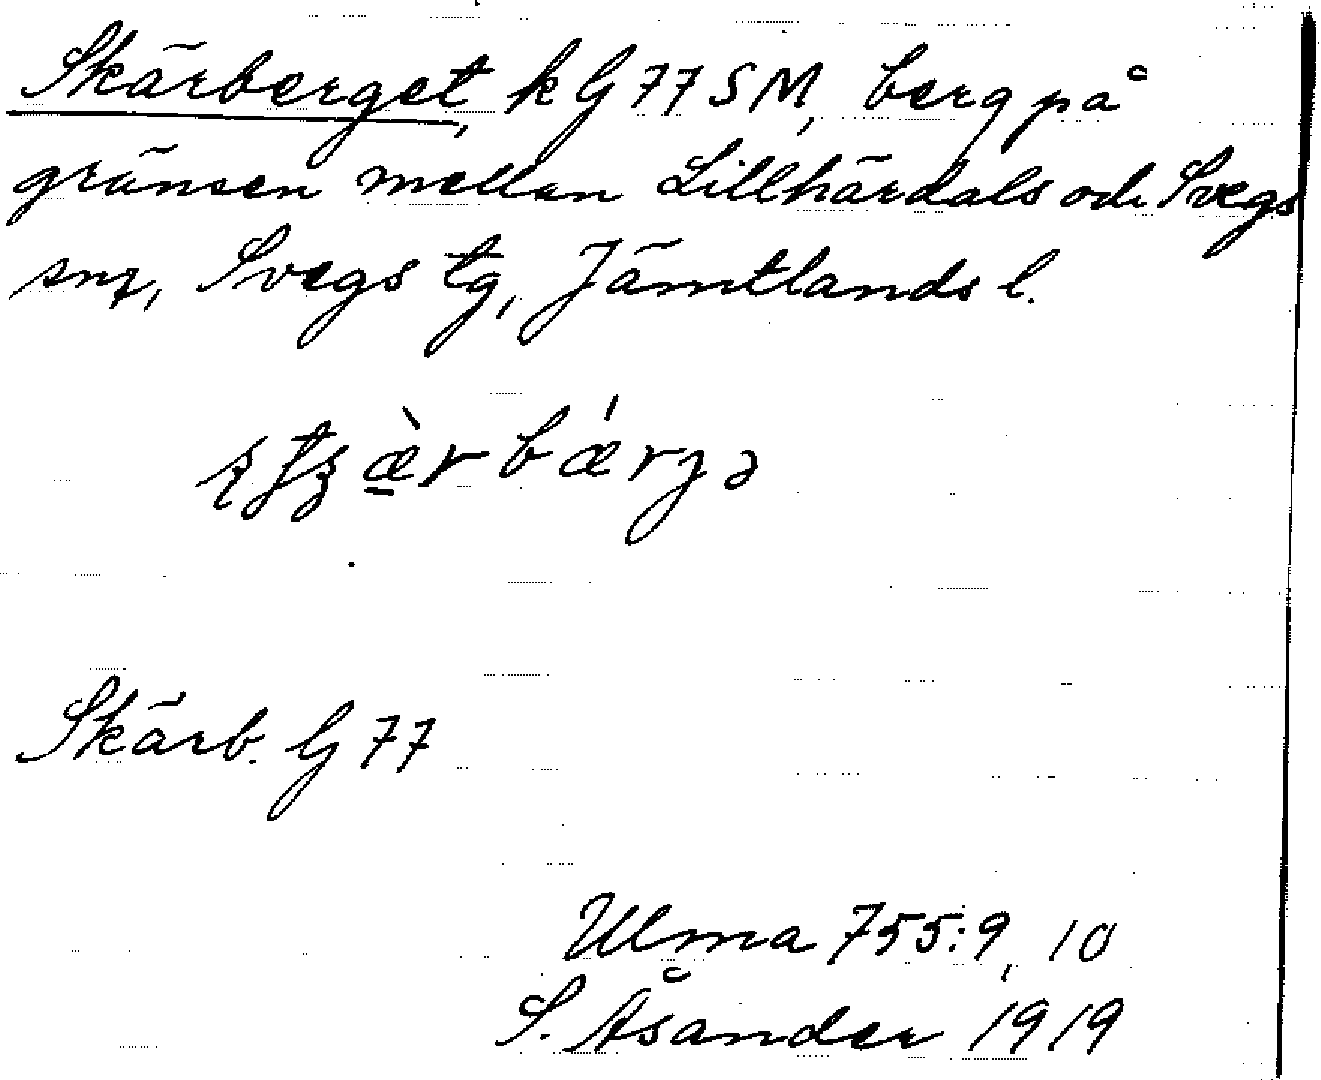 Skärberget, k G 77 SM, berg på
gränsen mellan Lillhärdals och Svegs
snr, Svegs tg, Jämtlands l.
Skärb. G 77
Ulma 755:9, 10
S. Åsander 1919